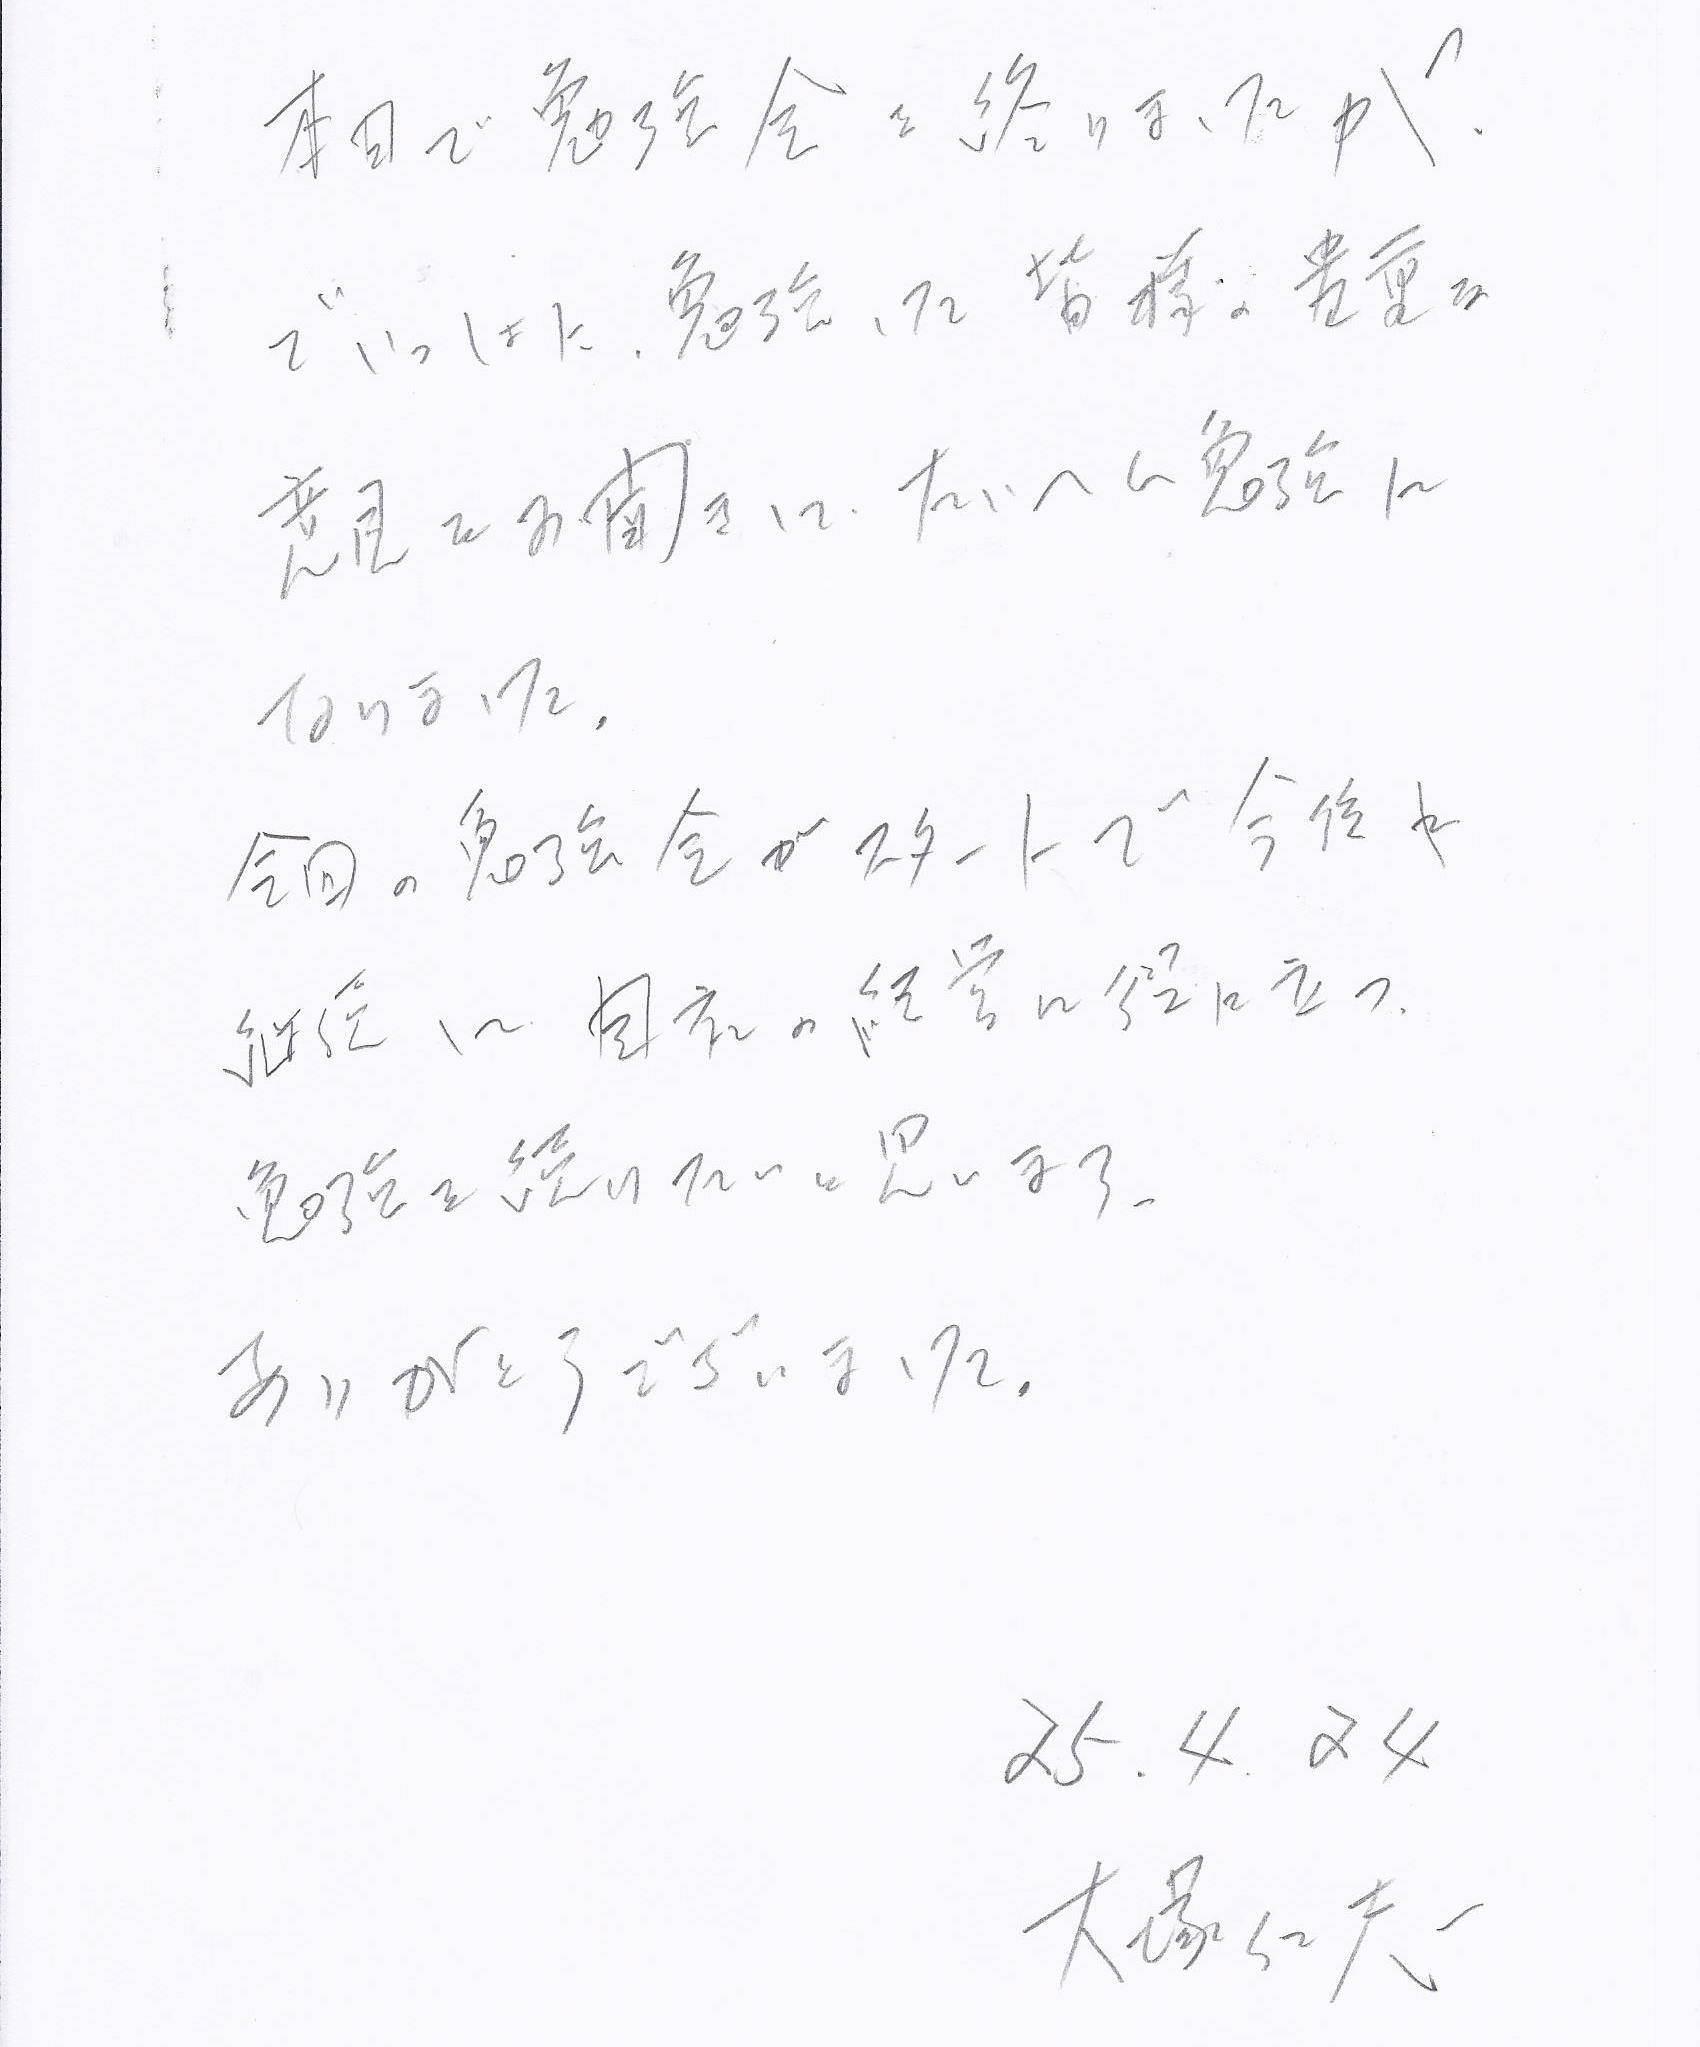 本日で勉強会を終りましたが、
で　いっしょに、勉強した皆様の貴重な
意見をお聞きして、たいへん勉強に
なりました。
今回の勉強会がスタートで今後も
継続して、自社の経営に役に立つ、
勉強を続けたいと思います。
ありがとうございました。
25.4.24
大塚仁夫